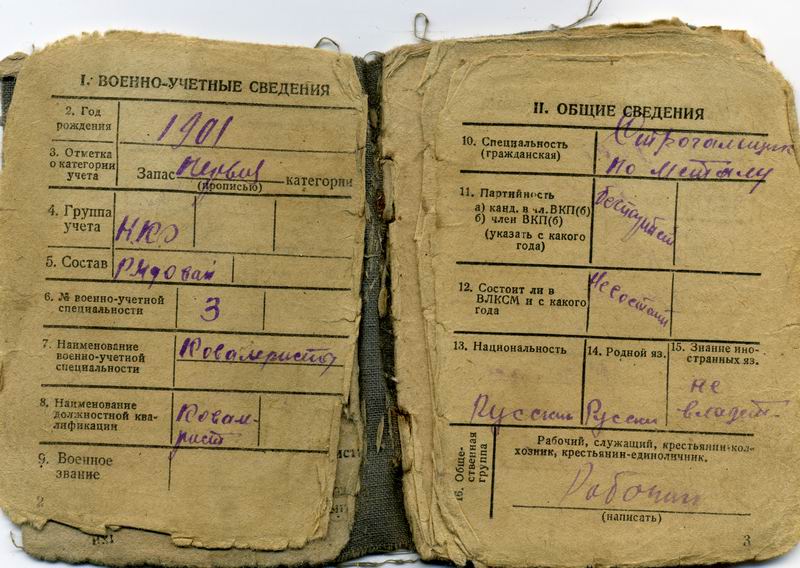 I. ВОЕННО-УЧЕТНЫЕ СВЕДЕНИЯ
2. Год
рождения
1901
3. Отметка
о категории
учета
Запас первой категории
(прописью)
4. Группа
учета
НКО
5. Состав
Рядовой
6. № военно-учетной
специальности
3
7. Наименование
военно-учетной
специальности
Ковалеристы
8. Наименование
должностной ква-
лификации
Ковале-
рист
9. Военное
звание
2
II. ОБЩИЕ СВЕДЕНИЯ
10. Специальность
(гражданская)
Строгальщик
по металу
11. Партийность
а) канд. в чл. ВКП(б)
б) член ВКП(б)
(указать с какого
года)
беспартист
12. Состоит ли в
ВЛКСМ и с какого
года
Несостоит
13. Национальность
Русский
14. Родной яз.
Русский
15. Знание ино-
странных яз.
не
владеет
16. Обще-
ственная
группа
Рабочий, служащий, крестьянин-кол-
хозник, крестьянин-единоличник.
Рабочий
(написать)
3